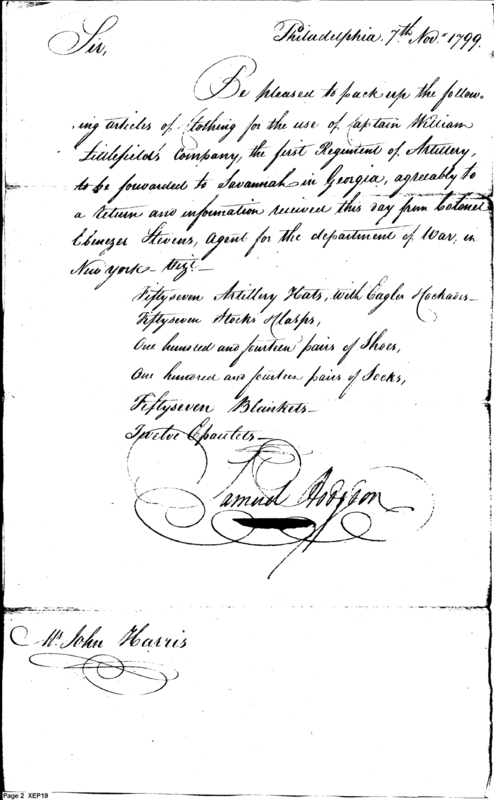 Philadelphia, 7th Nov. 1799.
Sir,
Be pleased to pack up the follow-
ing articles of Clothing for the use of Captain William
Littlefield's Company, the first Regiment of Artillery,
to be forwarded to Savannah in Georgia, agreeably to
a return and information received this day from Colonel
Ebenezer Stevens, Agent for the department of War, in
New York - Vizt -
Fiftyseven Artillery Hats, with Eagles &
Fiftyseven Stocks & Clasps,
One hundred and fourteen pairs of Shoes,
One hundred and fourteen pairs of Socks,
Fiftyseven Blankets -
Twelve Epaulets -
Samuel Hodgdon
Mr. John Harris
Page 2 XEP19